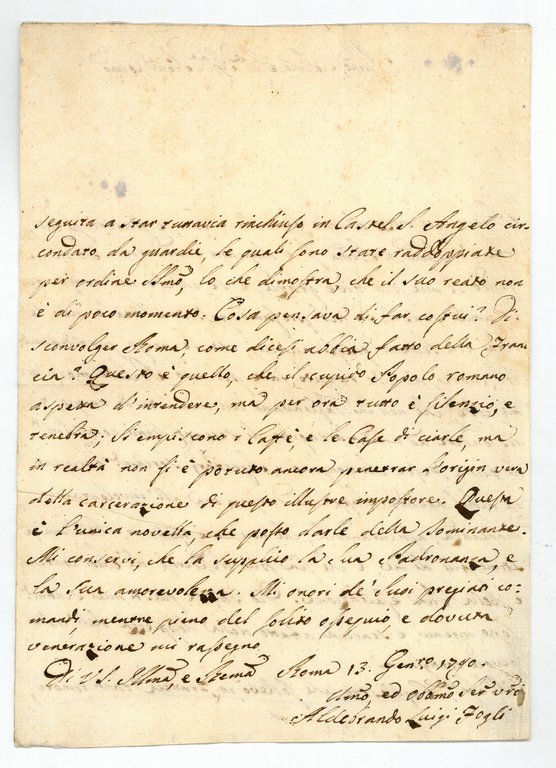 seguita a star tuttavia rinchiuso in Castel S. Angelo cir
condato da guardie, le quali sono state raddoppiate
per ordine SSmo, lo che dimostra, che il suo reato non
è di poco momento. Cosa pensava di far costui? Di
sconvolger Roma, come dicesi abbia fatto della Fran
cia? Questo è quello, che il cupido Popolo romano
aspetta d'intendere, ma per ora tutto è silenzio, e
tenebra; si empiscono i Caffè, e le Case di ciarle, ma
in realtà non si è potuto ancora penetrar l'origin vera
della carcerazione di questo illustre impostore. Questa
è l'unica novella, che posso darle della Dominante.
Mi conservi, che la supplico la sua Padronanza, e
la sua amorevolezza. Mi onori de' suoi pregiati co
mandi, mentre pieno del solito ossequio, e dovuta
venerazione mi rassegno
Di V.S. Illma, e Roma 13. Genro 1790.
ed Obbmo Ser
Aldebrando Luigi Fogli